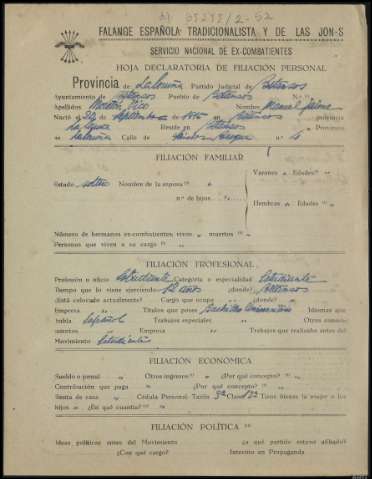 35255/2-52
FALANGE ESPAÑOLA TRADICIONALISTA Y DE LAS JON-S
SERVICIO NACIONAL DE EX-COMBATIENTES
HOJA DECLARATORIA DE FILIACIÓN PERSONAL
Provincia de La Coruña Partido Judicial de Betanzos
Ayuntamiento de Betanzos Pueblo de Betanzos N.º
Apellidos Pico Nombre Manuel Jaime
Nació el 24 de Septiembre de en Betánzos provincia
La Coruña Reside en Betanzos Provincia
de La Coruña Calle de n.º 4
FILIACIÓN FAMILIAR
Varones " Edades? "
Estado soltero Nombre de la esposa? "
n.º de hijos
Hembras " Edades? "
Número de hermanos ex-combatientes vivos " muertos? "
Personas que viven a su cargo? "
FILIACIÓN PROFESIONAL
Profesión u oficio Estudiante Categoría o especialidad Estudiante
Tiempo que lo viene ejerciendo 12 años ¿donde? Betanzos
¿Está colocado actualmente? Cargo que ocupa " ¿donde? "
Empresa " Títulos que posee Bachiller Universitario Idiomas que
habla Español Trabajos especiales " Otros conoci-
mientos " Empresa " Trabajos que realizaba antes del
Movimiento Estudiante
FILIACIÓN ECONÓMICA
Sueldo o jornal " Otros ingresos " ¿Por qué concepto? "
Contribución que paga " ¿Por qué concepto? "
Renta de casa " Cédula Personal Tarifa 3ª Clase Tiene bienes la mujer o los
hijos " ¿En qué cuantía? "
FILIACIÓN POLÍTICA
Ideas políticas antes del Movimiento ¿a qué partido estuvo afiliado?
¿Con qué cargo? Intervino en Propaganda